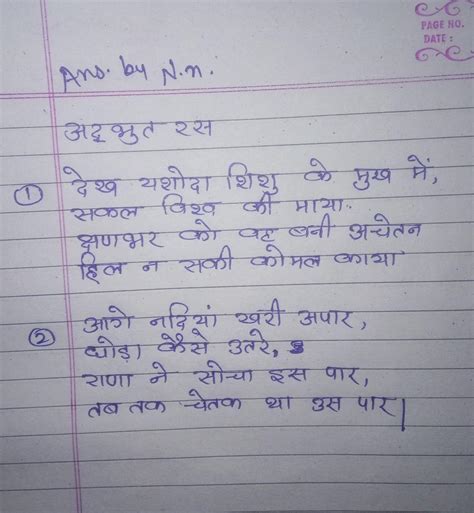 PAGE NO.
DATE :
Ans. by N.n.
अद्भुत रस
① देख यशोदा शिशु के मुख में,
सकल विश्व की माया.
क्षणभर को वह बनी अचेतन
हिल न सकी कोमल काया
② आगे नदियां खरी अपार,
घोड़ा कैसे उतरे,
राणा ने सोचा इस पार,
तब तक चेतक था उस पार|